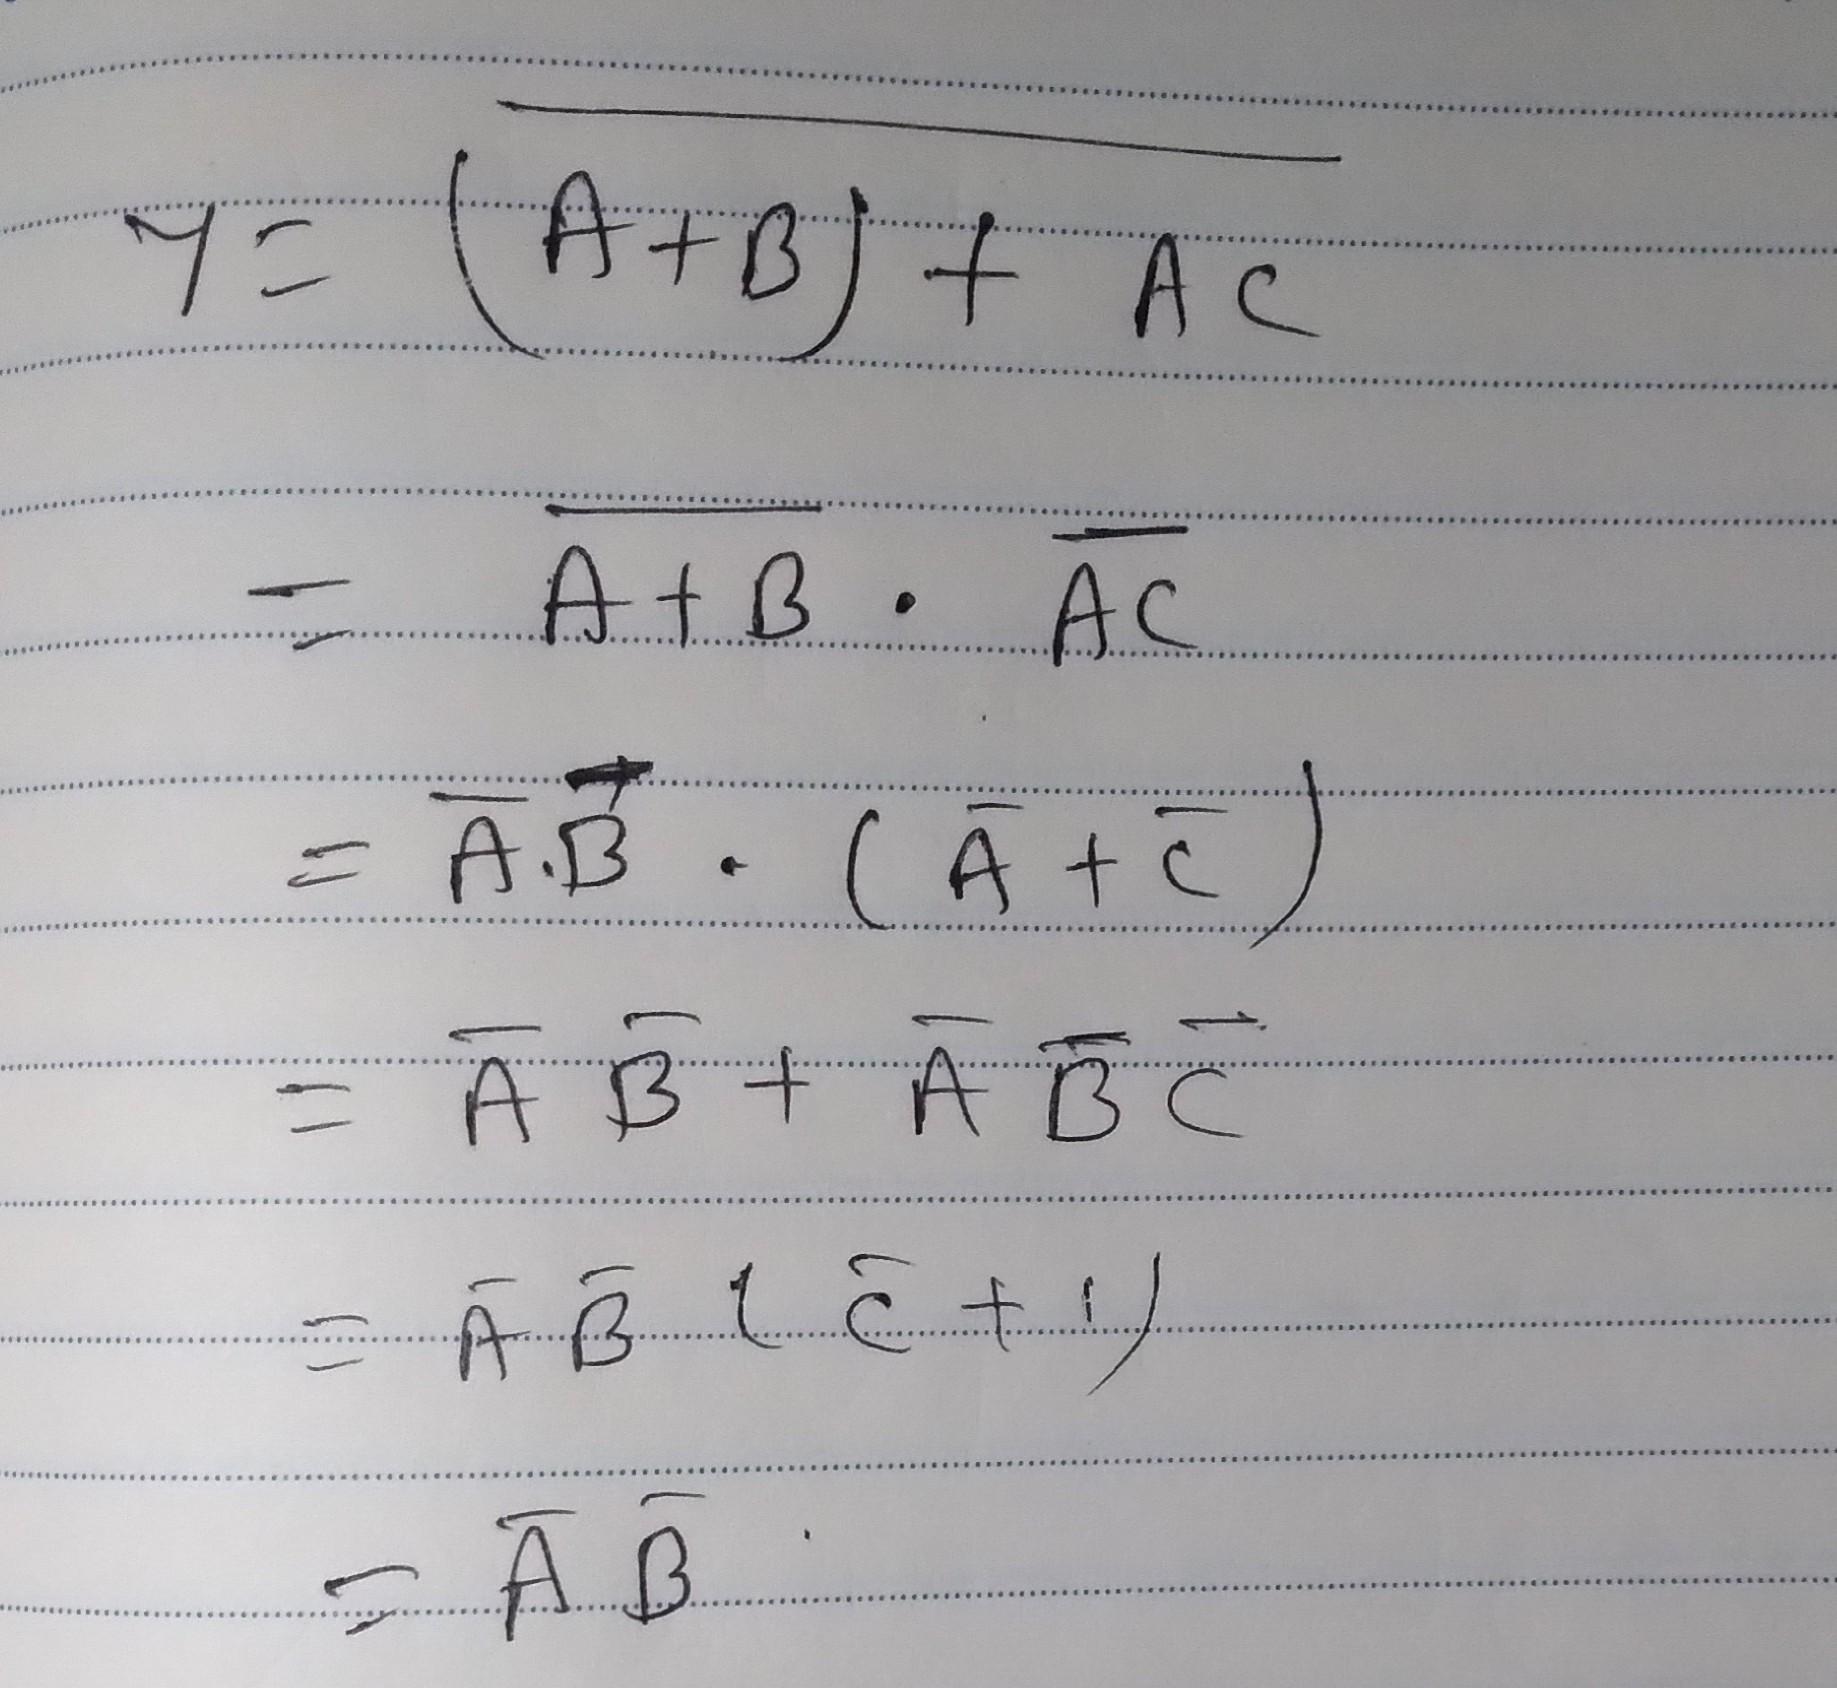 Y = \overline{(A+B) + AC}
= \overline{A+B} · \overline{AC}
= \overline{A}.\overline{B} · (\overline{A} + \overline{C})
= \overline{A} \overline{B} + \overline{A} \overline{B} \overline{C}
= \overline{A} \overline{B} (\overline{C} + 1)
= \overline{A} \overline{B}